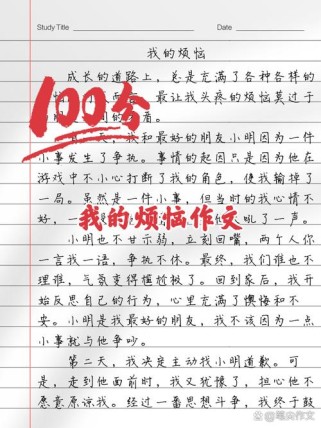 Study Title
Date
我的烦恼
成长的道路上,总是充满了各种各样的
最让我头疼的烦恼莫过于
100分
天,我和最好的朋友小明因为一件
小事发生了争执。事情的起因只是因为他在
游戏中不小心打断了我的角色,使我输掉了
一局。虽然是一件小事,但当时的我心情不
好,一
吼了一声。
我的烦恼作文
小明也不甘示弱,立刻回嘴,两个人你
一言我一语,争执不休。最终,我们谁也不
理谁,气氛变得尴尬极了。回到家后,我开
始反思自己的行为,心里充满了懊悔和不
安。小明是我最好的朋友,我不该因为一点
小事就与他争吵。
第二天,我决定主动找小明道歉。可
是,走到他面前时,我又犹豫了,担心他不
愿意原谅我。经过一番思想斗争,我终于鼓